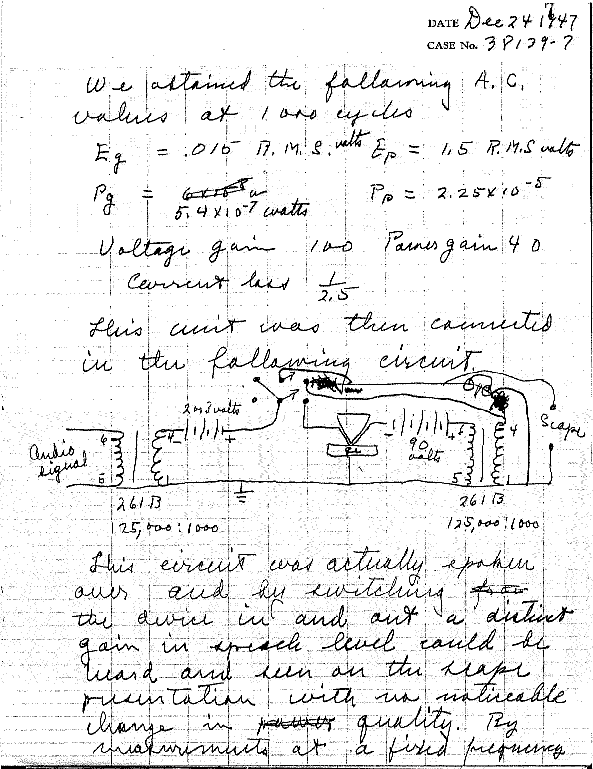 DATE Dec 24 1947
CASE No. 38139-7
We obtained the following A.C.
values at 1000 cycles
Eg = .015 R.M.S. volts Ep = 1.5 R.M.S volts
Pg = 6 x 10⁻⁸ w Pp = 2.25 x 10⁻⁵
5.4 x 10⁻⁷ watts
Voltage gain 100 Power gain 40
Current loss 1/2.5
This unit was then connected
in the following circuit.
2 or 3 volts
Scope
Audio signal
6 5 4 1
- +
Ge
90 volts
- +
6 5 4 1
261B
125,000:1000
261B
125,000:1000
This circuit was actually spoken
over and by switching
the device in and out a distinct
gain in speech level could be
heard and seen on the scope
presentation with no noticeable
change in power quality. By
measurements at a fixed frequency